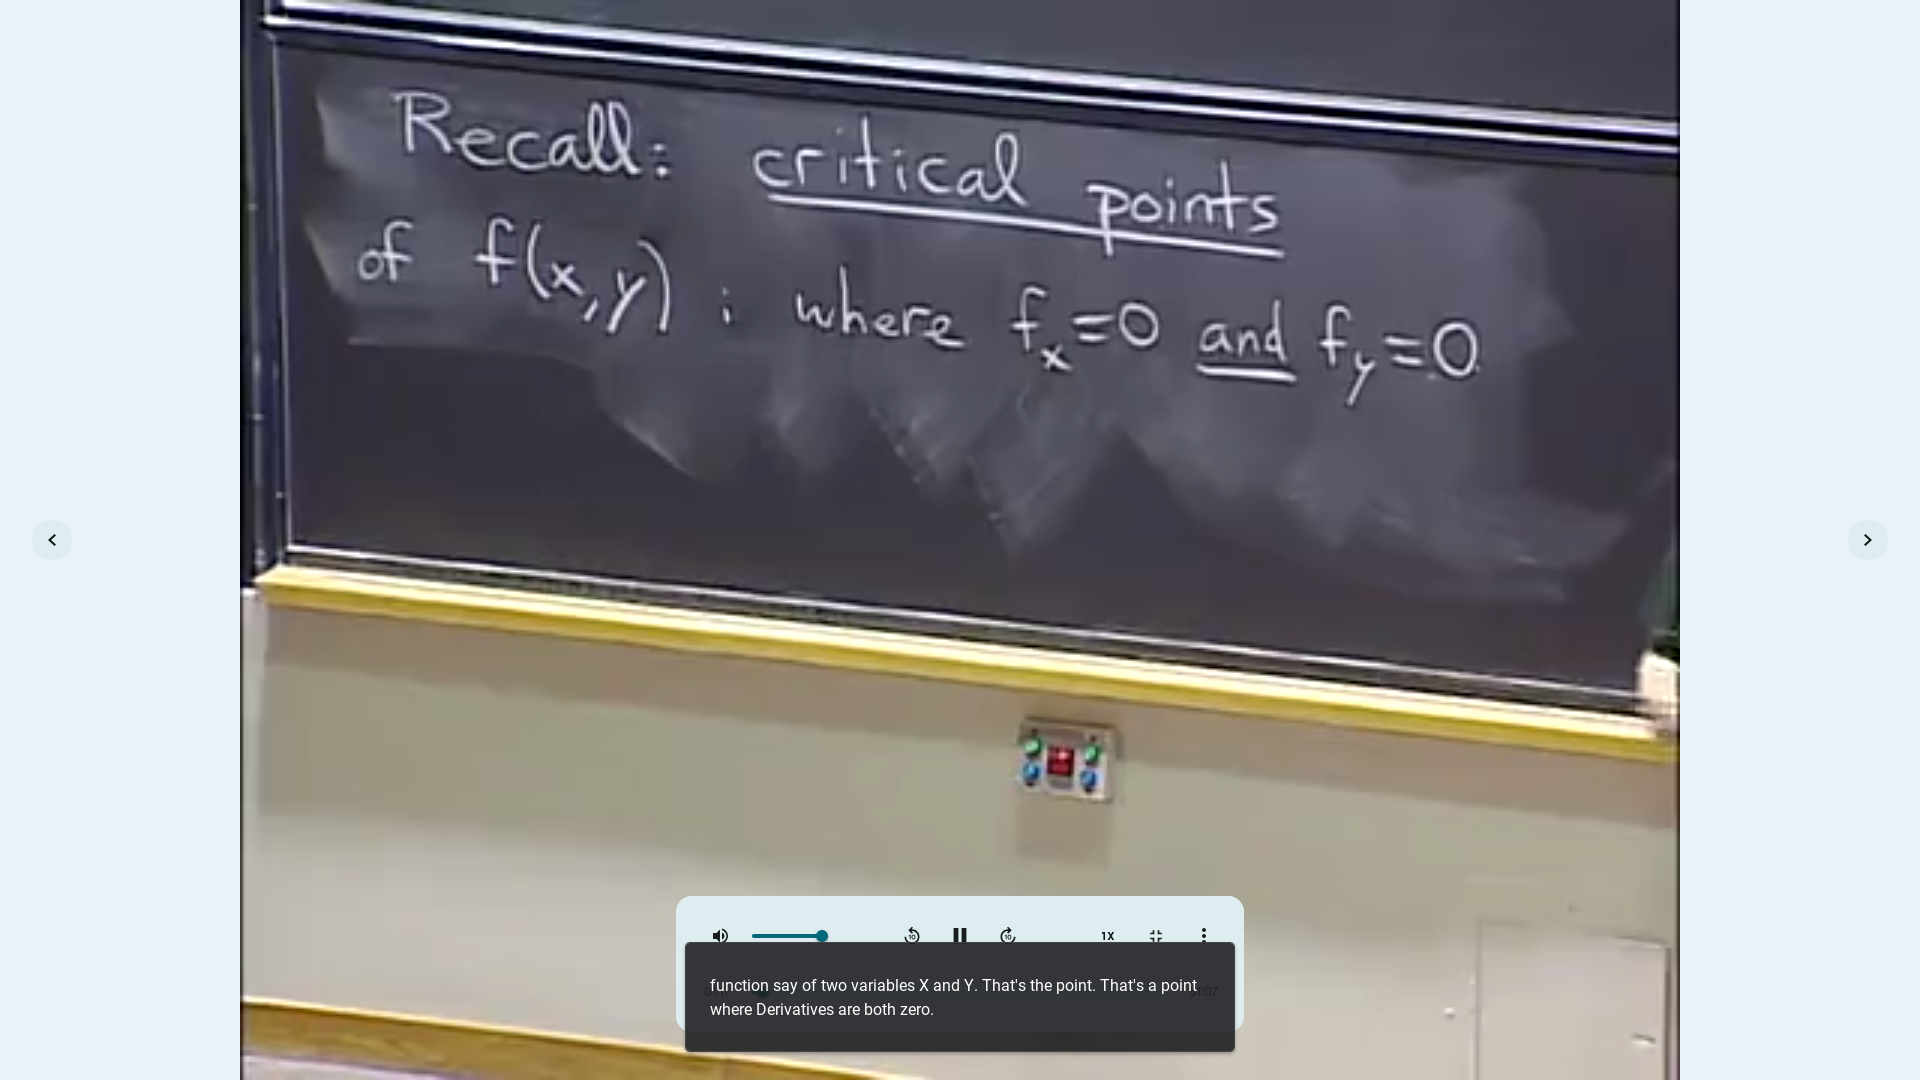 Recall: critical points
of f(x,y) : where fₓ=0 and f_y=0
1X
function say of two variables X and Y. That's the point. That's a point
where Derivatives are both zero.